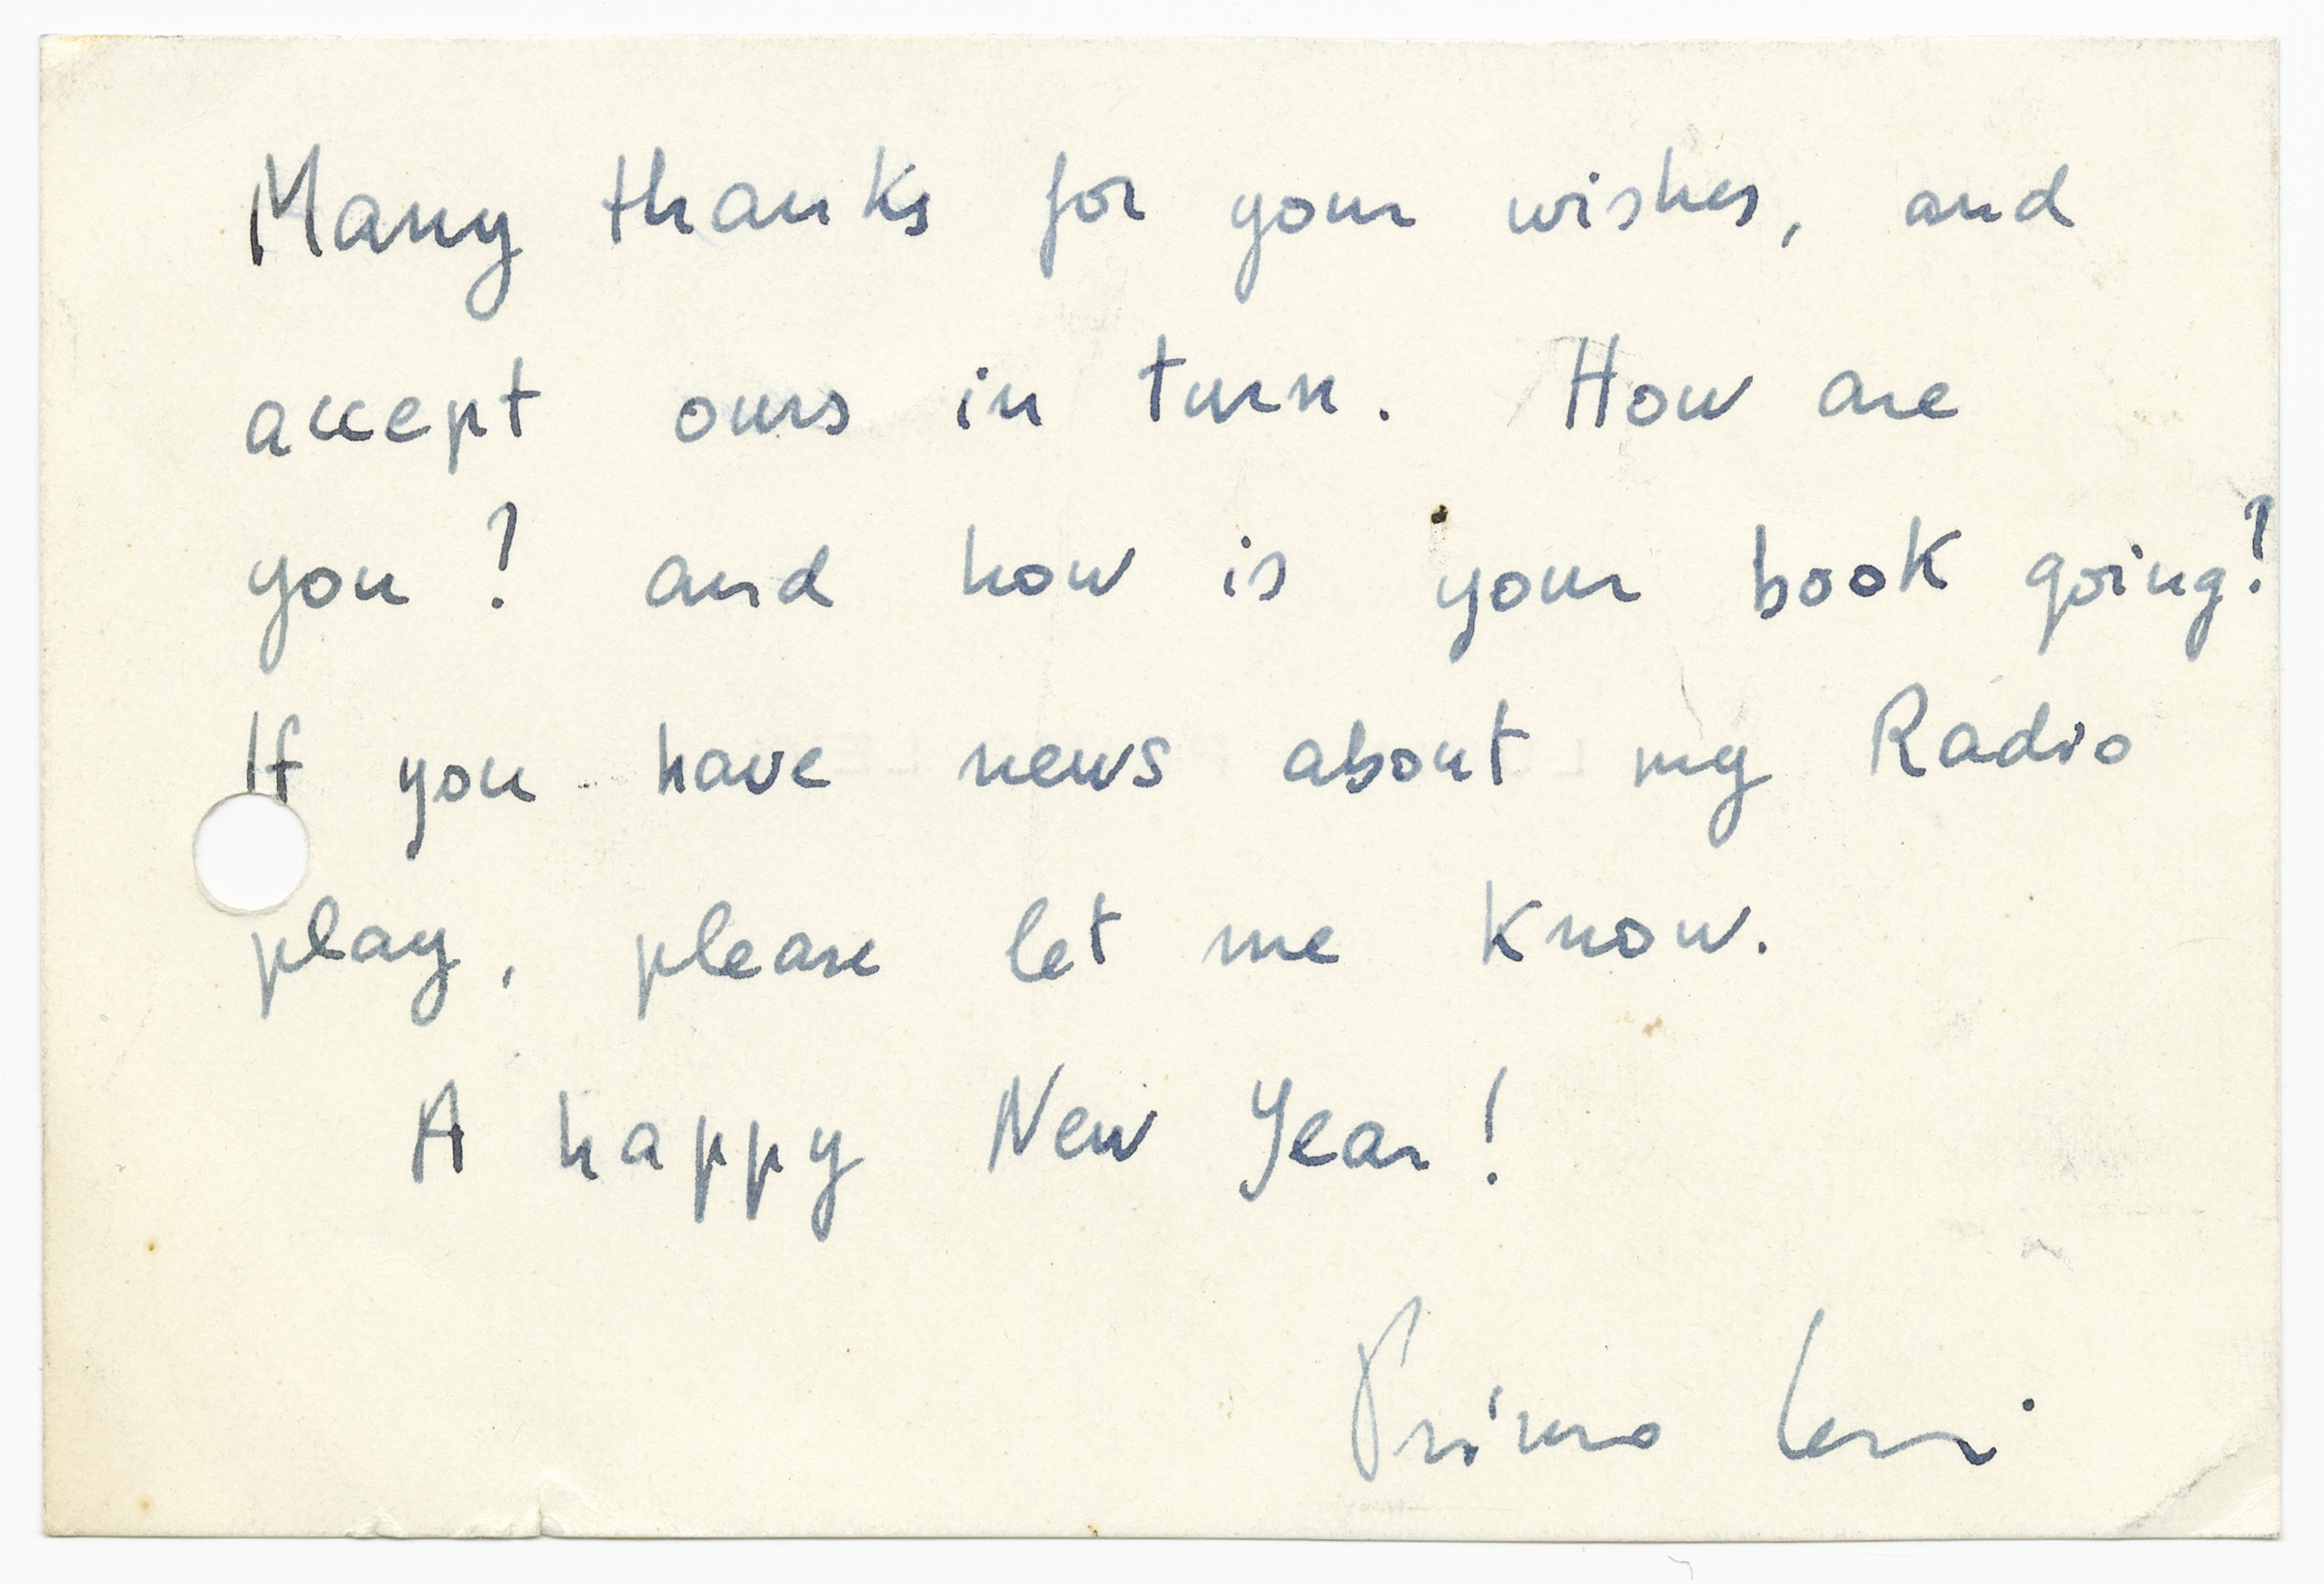 Many thanks for your wishes, and
accept ours in turn. How are
you? and how is your book going?
If you have news about my Radio
play, please let me know.
A happy New Year!
Primo Levi